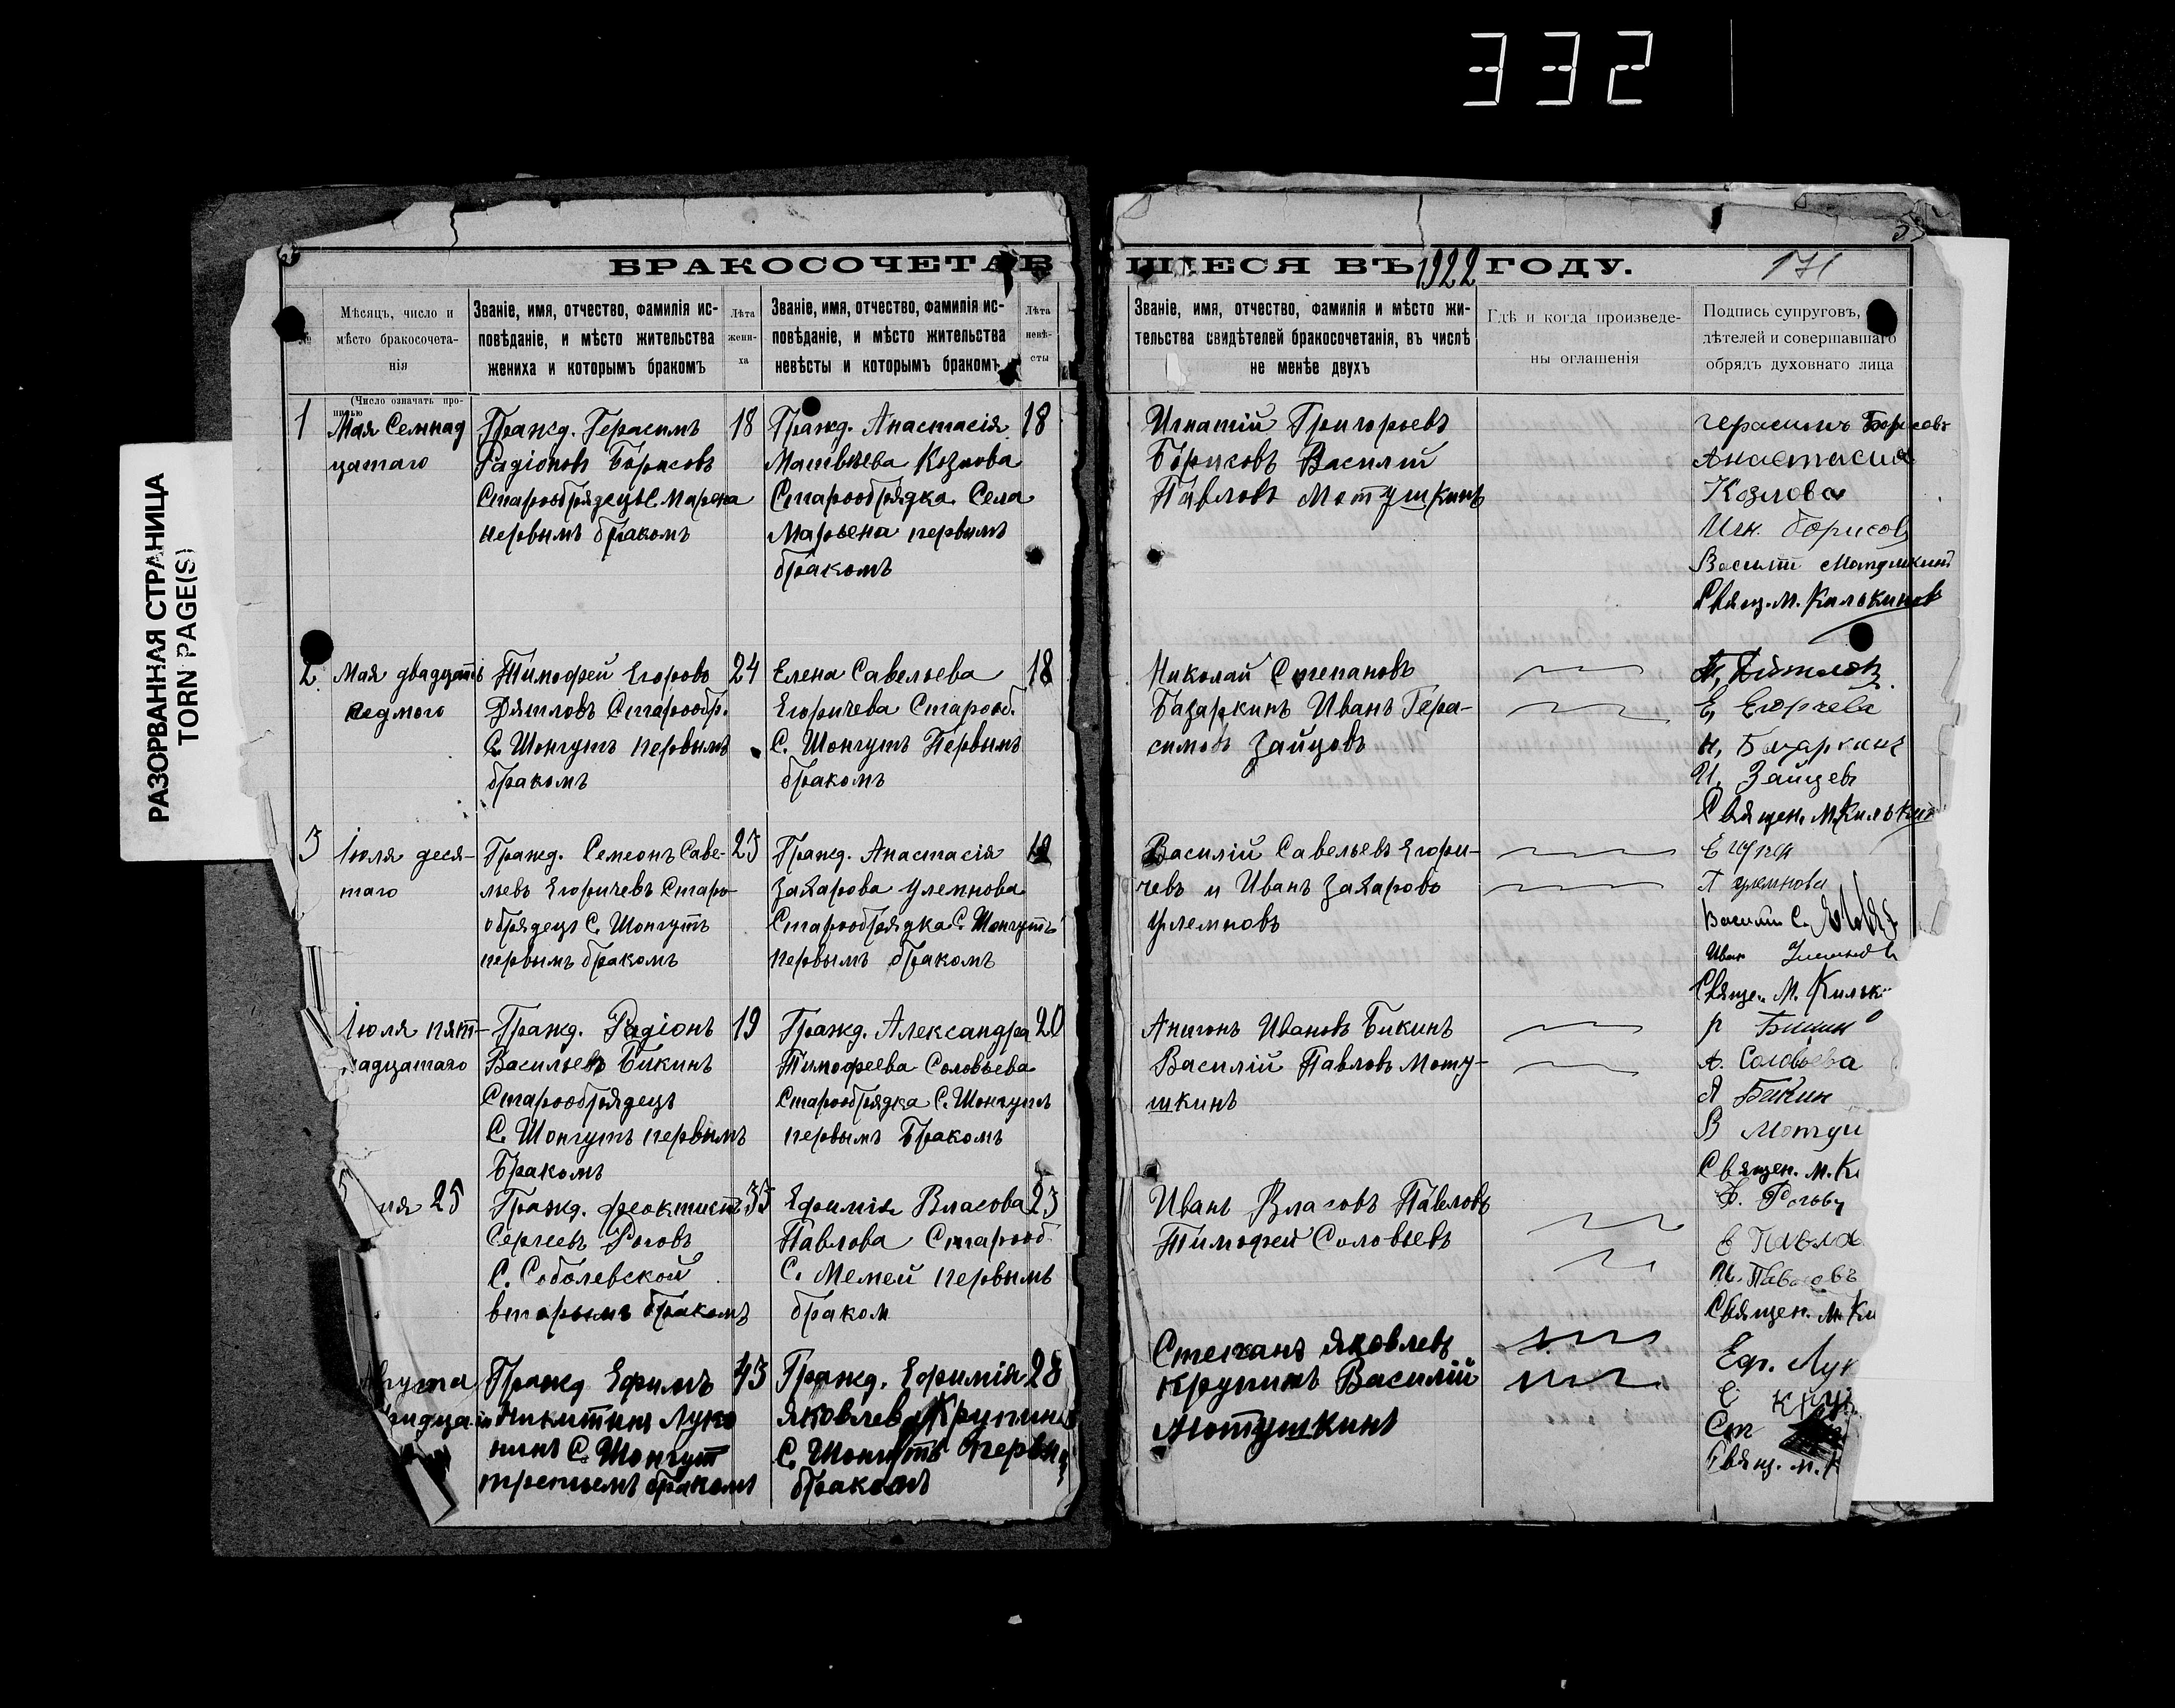 332
РАЗОРВАННАЯ СТРАНИЦА
TORN PAGE(S)
БРАКОСОЧЕТАВ
ШIЕСЯ ВЪ 1922 ГОДУ.
171
№
Мѣсяцъ, число и
мѣсто бракосочета-
нія
(Число означать про-
писью
Званіе, имя, отчество, фамилія ис-
повѣданіе, и мѣсто жительства
жениха и которымъ бракомъ
Лѣта
жени-
ха
Званіе, имя, отчество, фамилія ис-
повѣданіе, и мѣсто жительства
невѣсты и которымъ бракомъ
Лѣта
невѣ-
сты
Званіе, имя, отчество, фамилія и мѣсто жи-
тельства свидѣтелей бракосочетанія, въ числѣ
не менѣе двухъ
Гдѣ и когда произведе-
ны оглашенія
Подпись супруговъ,
дѣтелей и совершавшаго
обрядъ духовнаго лица
1
Мая Семнад
цатаго
Гражд. Герасимъ
Радіоновъ Борисовъ
Старообрядецъ с. Марьена
первымъ бракомъ
18
Гражд. Анастасія
Матвѣева Козлова
Старообрядка Села
Марьена первымъ
бракомъ
18
Игнатій Григорьевъ
Борисовъ Василій
Павловъ Мотушкинъ
Герасимъ Борисовъ
Анастасия
Козлова
Игн. Борисов
Василий Мотушкинъ
Свящ. М. Калькинов
2
Мая двадцать
седмого
Тимофей Егоровъ
Дятловъ Старообр.
С. Шонгутъ первымъ
бракомъ
24
Елена Савельева
Егоричева Старооб.
С. Шонгутъ Первымъ
бракомъ
18
Николай Степановъ
Базаркинъ Иванъ Гера-
симовъ Зайцовъ
Е. Егорчева
Н. Базаркинъ
И. Зайцевъ
Священ. М.
3
Іюля деся-
таго
Гражд. Семеонъ Саве-
льевъ Егоричевъ Старо-
обрядецъ С. Шонгутъ
первымъ бракомъ
23
Гражд. Анастасія
Захарова Улемнова
Старообрядка С. Шонгутъ
первымъ бракомъ
Василій Савельевъ Егори-
чевъ и Иванъ Захаровъ
Улемновъ
Василий С.
Иван
Священ. М.
Іюля пят-
надцатаго
Гражд. Радіонъ
Васильевъ Бикинъ
Старообрядецъ
С. Шонгутъ первымъ
Бракомъ
19
Гражд. Александра
Тимофеева Соловьева
Старообрядка С. Шонгутъ
первымъ Бракомъ
20
Антонъ Ивановъ Бикинъ
Василій Павловъ Моту-
шкинъ
Р Бикин
А. Соловьева
А Бикин
В Мотуш
Священ. М. К
5
25
Гражд. Феоктистъ
Сергеевъ Роговъ
С. Соболевской
вторымъ бракомъ
33
Ефимія Власова
Павлова Старооб
С. Мемей первымъ
браком
23
Иванъ Власовъ Павловъ
Тимофей Соловьевъ
Ф. Роговъ
Е Павла
И. Павловъ
Священ. М. К
Августа
Гражд Ефимъ
Никитинъ Луко
нинъ С. Шонгут
третьемъ бракомъ
43
Гражд. Ефимія
Яковлева Крупина
С. Шонгутъ первы
бракомъ
28
Степанъ Яковлевъ
Крупинъ Василій
Мотушкинъ
Еф. Лук
Е Круп
Ст
Свящ. М. К